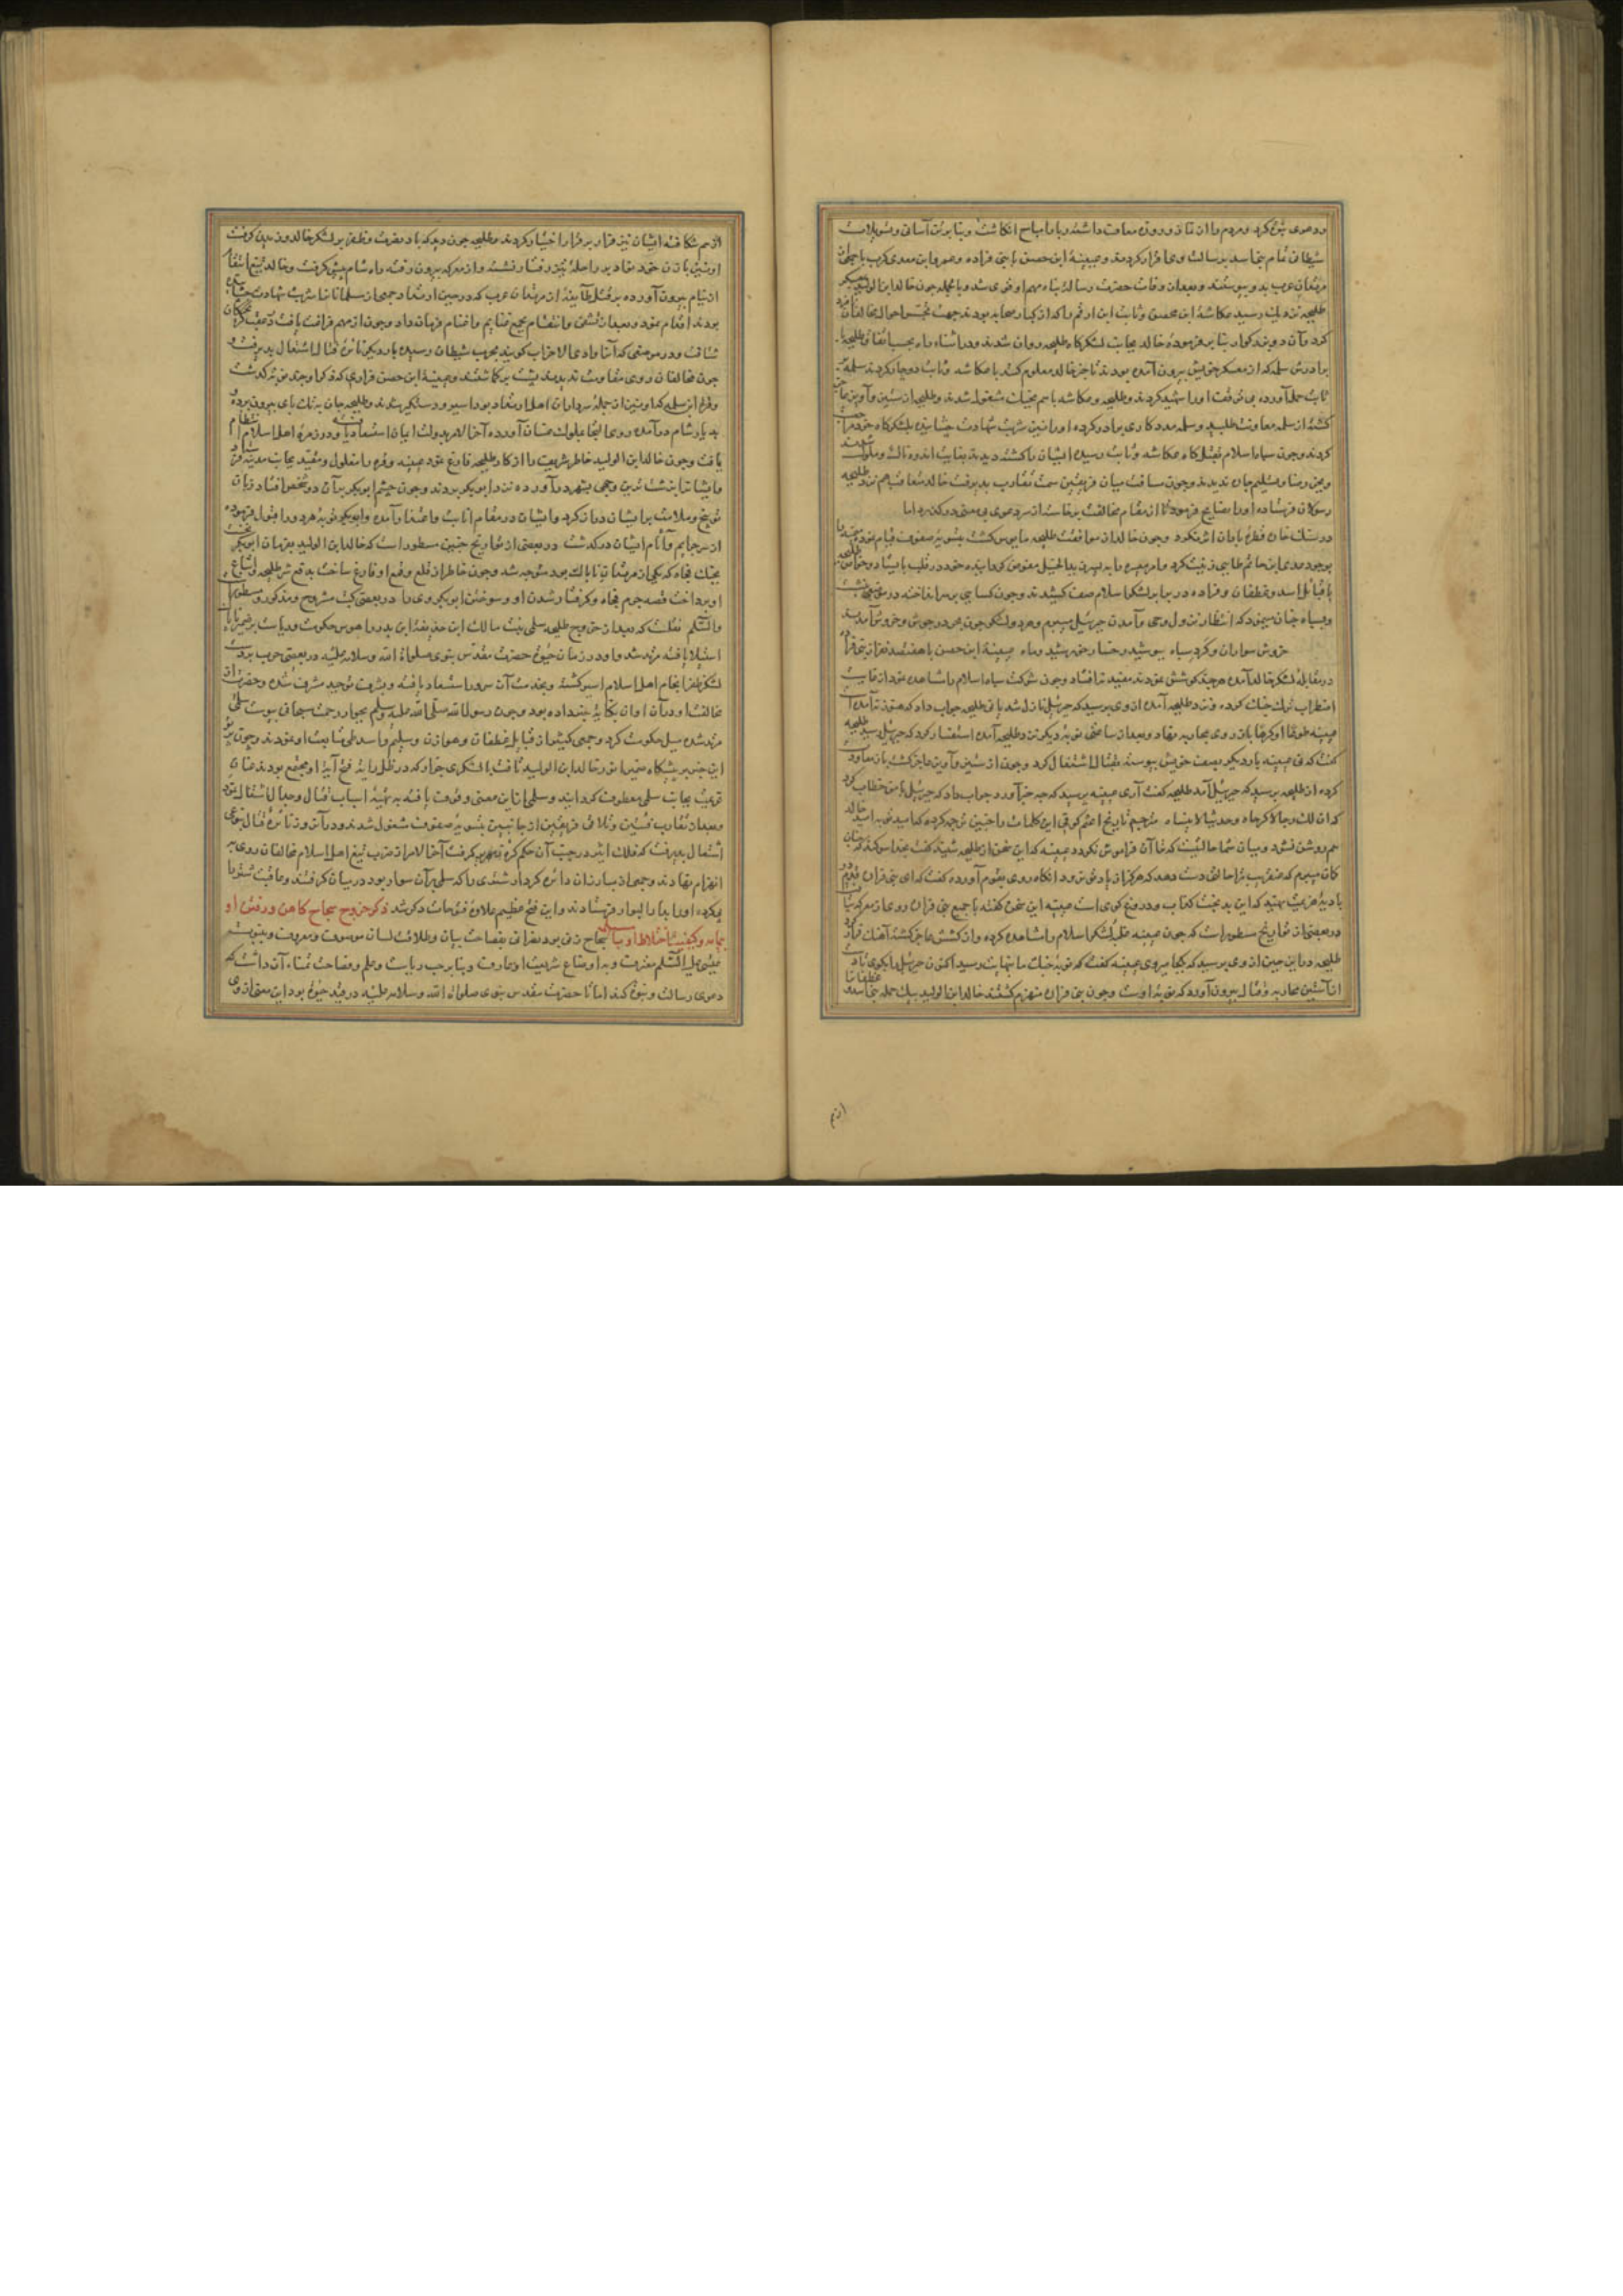 ودعوی نبوة کرد و مردم را از نماز و روزه معاف داشته و با را مباح انکاشت و بنا بر تن آسانی و تسویلات
شیطان تمام بنی اسد برسالت وی اقرار کردند و عیینة ابن حصن با بنی فزاره و عمرو ابن معدی کرب با جمعی از
مرتدان عرب بدو پیوستند و بعد از وفات حضرت رسالت پناه مهم او قوی شد و بالجمله چون خالد ابن الولید بمعسکر
طلیحه نزدیک رسید عکاشة ابن محصن و ثابت ابن ارقم را که از کبار صحابه بودند جهت تجسس احوال مخالفان نامزد
کرد و آن دو بزرکوار بنا بر فرموده خالد بجانب لشکرکاه طلیحه روان شدند و در اثناء راه بحسب اتفاق طلیحه با
برادرش سلمه که از معسکر خویش بیرون آمده بودند تا خبر خالد معلوم کنند با عکاشه و ثابت دوچار کردند سلمه بر
ثابت حمله آورده بی توقف او را شهید کرد و طلیحه و عکاشه با هم بجنک مشغول شدند و طلیحه از ستیز و آویز عاجز
کشته از سلمه معاونت طلبید و سلمه مددکاری برادر کرده او را نیز شربت شهادت چشانیده بلشکرکاه خود مراجعت
کردند و چون سپاه اسلام بقتلکاه عکاشه و ثابت رسیده ایشان را کشته دیدند بغایت اندوهناک و ملول شدند
و بجز رضا و تسلیم چاره ندیدند و چون مسافت میان فریقین سمت تقارب پذیرفت خالد متعاقب هم نزد طلیحه
رسولان فرستاده او را بنصایح فرمود تا از مقام مخالفت برخاسته از سر دعوی بی معنی درکذرد اما
در سنک خاره قطره باران اثر نکرد و چون خالد از موافقت طلیحه مایوس کشت بتسویه صفوف قیام نمود میمنه را
بوجود عدی ابن حاتم طایی زینت کرد و امر میسره را به زید الخیل مفوض کردانیده خود در قلب بایستاد و طلیحه
با قبائل اسد و غطفان و فزاره در برابر لشکر اسلام صف کشیدند و چون کسایی بر سر انداخته در
و بسپاه چنان مینمود که انتظار نزول وحی و آمدن جبرئیل میبرم و هر دو لشکر چون بحر در جوش و خروش آمدند
خروش سواران و کرد سپاه بپوشید رخسار خورشید و ماه عیینة ابن حصن با هفتصد نفر از بنی فزاره
در مقابله لشکر خالد آمده هر چند کوشش نمودند مفید نیفتاد و چون شوکت سپاه اسلام را مشاهده نمود از غایت
اضطراب ترک جنک کرده نزد طلیحه آمده از وی پرسید که جبرئیل نازل شد یا نی طلیحه جواب داد که هنوز نیامده است
عیینه طوعا او کرها باز روی بمحاربه نهاد و بعد از ساعتی نوبه دیکر نزد طلیحه آمده استفسار کرد که جبرئیل رسید طلیحه
کفت که نی عیینه بار دیکر بصف خویش پیوسته بقتال اشتغال کرد و چون از ستیز و آویز عاجز کشت باز معاودت
کرده از طلیحه پرسید که جبرئیل آمد طلیحه کفت آری عیینه پرسید که چه خبر آورد جواب داد که جبرئیل با من خطاب کرد
که ان لک رحا کرحاه و حدیثا لا ینساه مترجم تاریخ اعثم کوفی این کلمات را چنین ترجمه کرده که امید تو به امید خالد
هم روشن نشود و میان شما حالیست که تا آن فراموش نکردد عیینه که این سخن از طلیحه شنید کفت بخدا سوکند که چنان
کمان میبرم که عنقریب ترا حالتی دست دهد که هرکز از یاد تو نرود انکاه روی بقوم آورده کفت که ای بنی فزاره
بادیه هزیمت نهید که این بدبخت کذاب و دروغ کوی است عیینه این سخن کفته با جمیع بنی فزاره روی از معرکه بتافت
و در بعضی از تواریخ مسطور است که چون عیینه غلبه لشکر اسلام را مشاهده کرده و از کشش عاجز کشته آهنک فرار کرد
طلیحه در این حین از وی پرسید که بکجا میروی عیینه کفت که نوبه جنک ما بنهایت رسید اکنون جبرئیل را بکوی تا دست
از آستین محاربه و قتال بیرون آورد که نوبه اوست و چون بنی فزاره منهزم کشتند خالد ابن الولید بیک حمله بنی اسد و غطفان را
از هم
از هم شکافته ایشان نیز قرار بر فرار اختیار کردند و طلیحه چون دید که باد نصرت و ظفر بر لشکر خالد وزیدن کرفت
او نیز با زن خود بنهاد بر راحله تیز رفتار نشسته و از معرکه بیرون رفته راه شام پیش کرفت و خالد تیغ انتقام
از نیام بیرون آورده بر قتل طایفه از مرتدان عرب که در حین ارتداد جمعی از مسلمانان را شربت شهادت چشانیده
بودند اقدام نمود و بعد از تشفی و انتقام بجمع غنایم و اغنام فرمان داد و چون از مهم فراغت یافت در عقب کریختکان
شتافت و در موضعی که آنرا وادی الاحزاب کویند بحزب شیطان رسیده بار دیکر نائره قتال اشتعال پذیرفت و
چون مخالفان روی مقاومت ندیدند پشت بر کاشتند و عیینة ابن حصن فزاری که ذکر او چند نوبه کذشت
و قرة ابن سلمه که او نیز از جمله سرداران اهل ارتداد بود اسیر و دستکیر شدند و طلیحه جان به تک پای بیرون برده
بدیار شام درآمده روی التجا بملوک غسان آورده آخر الامر بدولت ایمان استسعاد یافته و در زمره اهل اسلام انتظام
یافت و چون خالد ابن الولید خاطر شریف را از کار طلیحه فارغ نمود عیینه و قره را مغلول و مقید بجانب مدینه فرستاد
و ایشانرا بزشت ترین وجهی بشهر درآورده نزد ابوبکر بردند و چون چشم ابوبکر بر آن دو شخص افتاد زبان
توبیخ و ملامت بر ایشان دراز کرد و ایشان در مقام انابت و اعتذار آمده و ابوبکر توبه هر دو را قبول فرموده
از سر جرایم و آثام ایشان درکذشت و در بعضی از تواریخ چنین مسطور است که خالد ابن الولید بفرمان ابوبکر نخست
بجنک فجاه که یکی از مرتدان ناپاک بود متوجه شد و چون خاطر از قلع و قمع او فارغ ساخت بدفع شر طلیحه و اتباع
او پرداخت قصه جرم فجاه و کرفتار شدن او و سوختن ابوبکر وی را در بعضی کتب مشروح و مذکور و مسطور است
والسلم نقلست که بعد از خروج طلیحه سلمی بنت مالک ابن حذیفة ابن بدر را هوس حکومت و ریاست بر ضمیر ناپاک
استیلا یافته مرتد شد و او در زمان حیوة حضرت مقدس نبوی صلواة الله و سلامه علیه در بعضی حروب بدست
لشکر ظفر انجام اهل اسلام اسیر کشته و بخدمت آن سرور استسعاد یافته و بشرف توحید مشرف شده و حضرت از
مخالفت او در آن اوان بکنایه خبر داده بود و چون رسول الله صلی الله علیه و سلم بجوار رحمت سبحانی پیوست سلمی
مرتد شده میل حکومت کرد و جمعی کثیر از قبایل غطفان و هوازن و سلیم و اسد و طی متابعت او نمودند و چون پرتو
این خبر بر پیشکاه ضمیر انور خالد ابن الولید تافت با لشکری جرار که در ظل رایت فتح آیة او مجتمع بودند عنان
عزیمت بجانب سلمی معطوف کردانید و سلمی از این معنی وقوف یافته به تهیه اسباب قتال و جدال اشتغال نمود
و بعد از تقارب فئتین و تلاقی فریقین از جانبین بتسویه صفوف مشغول شدند و در آن روز نائره قتال بنوعی
اشتعال پذیرفت که فلک اثیر در جنب آن حکم کره زمهریر کرفت آخر الامر از ضرب تیغ اهل اسلام مخالفان روی به
انهزام نهادند و جمعی از مبارزان دائره کردار شتری را که سلمی بر آن سوار بود در میان کرفتند و عاقبت شتر را
پی کرده او را بدار البوار فرستادند و این فتح عظیم علاوه فتوحات دیکر شد ذکر خروج سجاح کاهن و رفتن او
بیمامه و کیفیت اختلاط او با مسیلمه سجاح زنی بود نصرانی بفصاحت بیان و طلاقت لسان موصوف و معروف و بنبوت
عیسی علیه السلم معترف و به اوضاع شریعت او عارف و بنا بر حب ریاست و علم و فصاحت تمناء آن داشت که
دعوی رسالت و نبوة کند اما تا حضرت مقدس نبوی صلواة الله و سلامه علیه در قید حیوة بود این معنی از وی